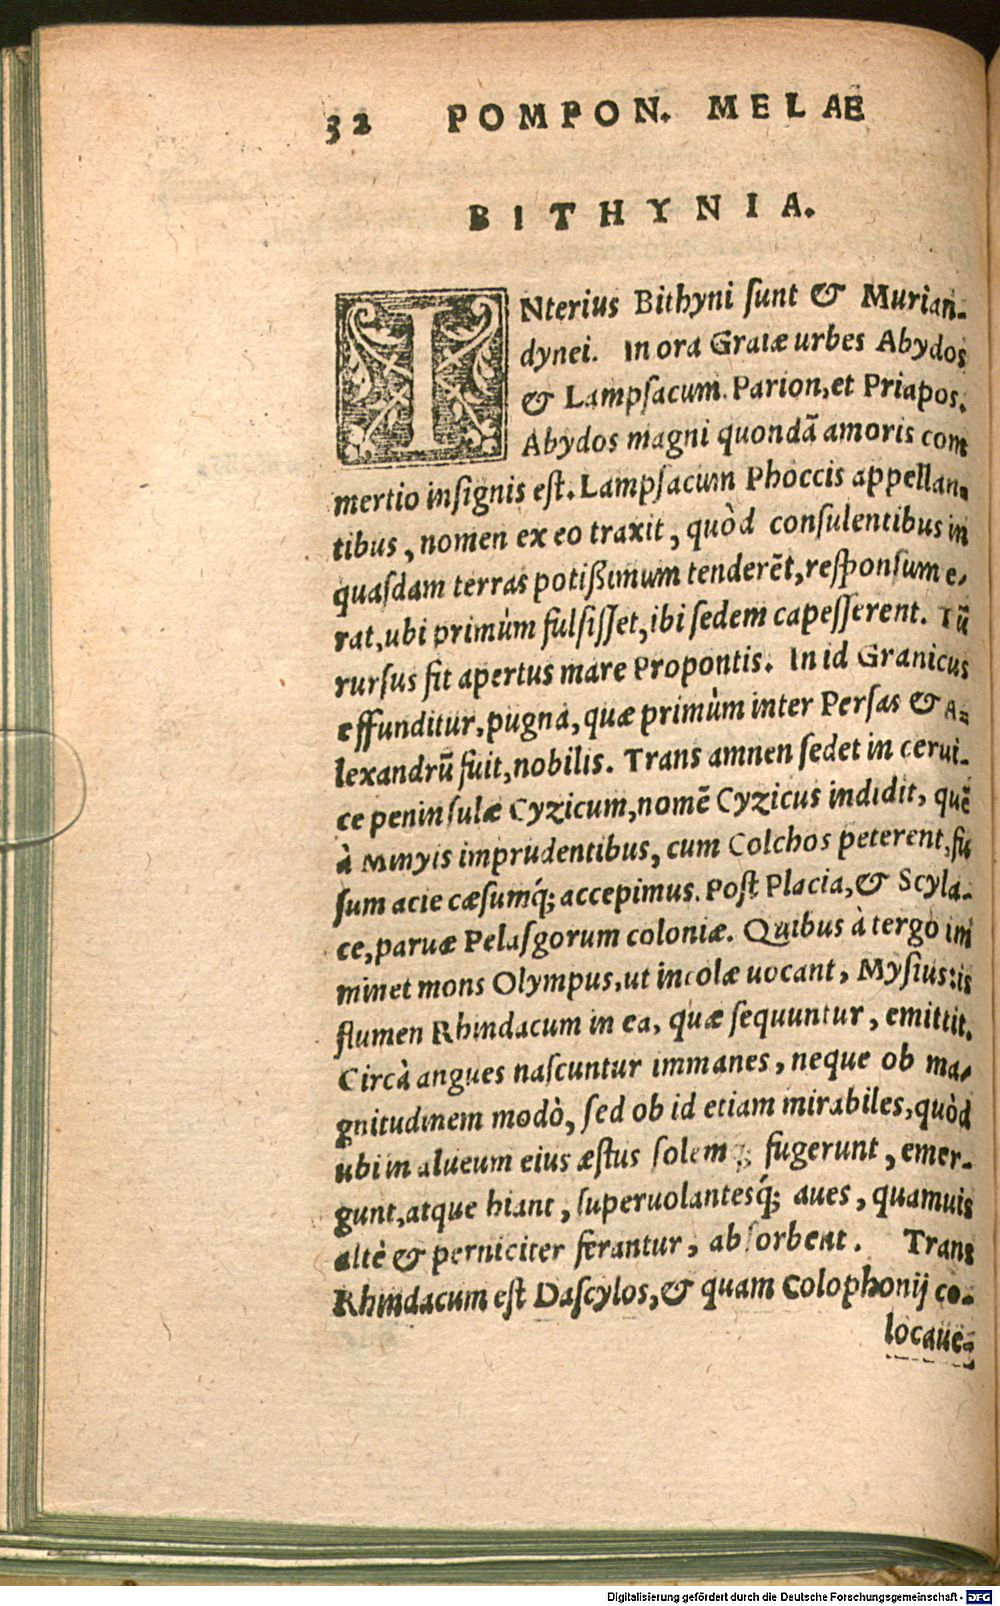 32 POMPON. MELAE
BITHYNIA.
INterius Bithyni ſunt & Murian-
dynei. In ora Graiæ urbes Abydos
& Lampſacum. Parion, et Priapos.
Abydos magni quondã amoris com
mertio inſignis eſt. Lampſacum Phoccis appellan-
tibus, nomen ex eo traxit, quòd conſulentibus in
quaſdam terras potißimum tenderẽt, reſponſum e-
rat, ubi primùm fulſiſſet, ibi ſedem capeſſerent. Tũ
rurſus fit apertus mare Propontis. In id Granicus
effunditur, pugna, quæ primùm inter Perſas & A-
lexandrũ fuit, nobilis. Trans amnen ſedet in cerui-
ce peninſulæ Cyzicum, nomẽ Cyzicus indidit, quẽ
à Minyis imprudentibus, cum Colchos peterent, fu
ſum acie cæſumq́; accepimus. Poſt Placia, & Scyla-
ce, paruæ Pelaſgorum coloniæ. Quibus à tergo im
minet mons Olympus, ut incolæ uocant, Myſius: is
flumen Rhindacum in ea, quæ ſequuntur, emittit.
Circà angues naſcuntur immanes, neque ob ma-
gnitudinem modò, ſed ob id etiam mirabiles, quòd
ubi in alueum eius æſtus ſolemq́; fugerunt, emer-
gunt, atque hiant, ſuperuolantesq́; aues, quamuis
altè & perniciter ferantur, abſorbent. Trans
Rhindacum eſt Daſcylos, & quam Colophonij co-
locaue-
Digitalisierung gefördert durch die Deutsche Forschungsgemeinschaft - DFG